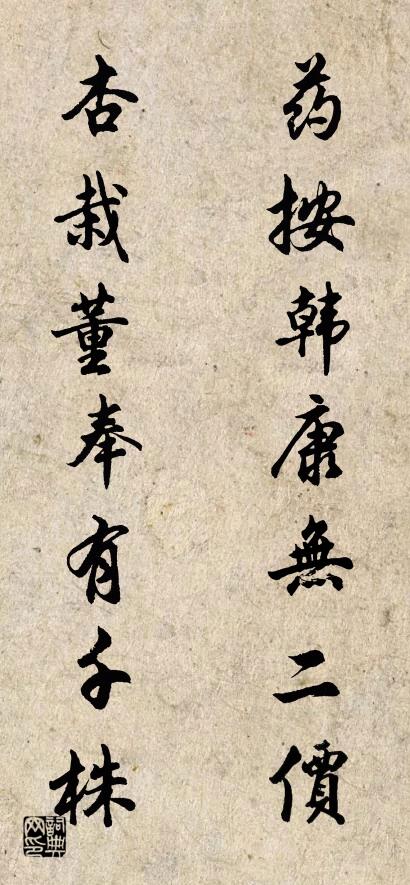 药按韩康無二價
杏栽董奉有千株
詞典网印